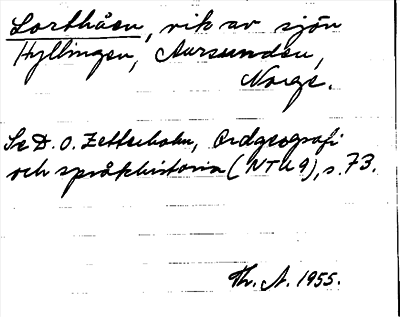 Lorthåen, vik av sjön
Hyllingen, Aursunden,
Norge.
Se D. O. Zetterholm, Ordgeografi
och språkhistoria (NTU 9), s. 73.
Th. A. 1955.